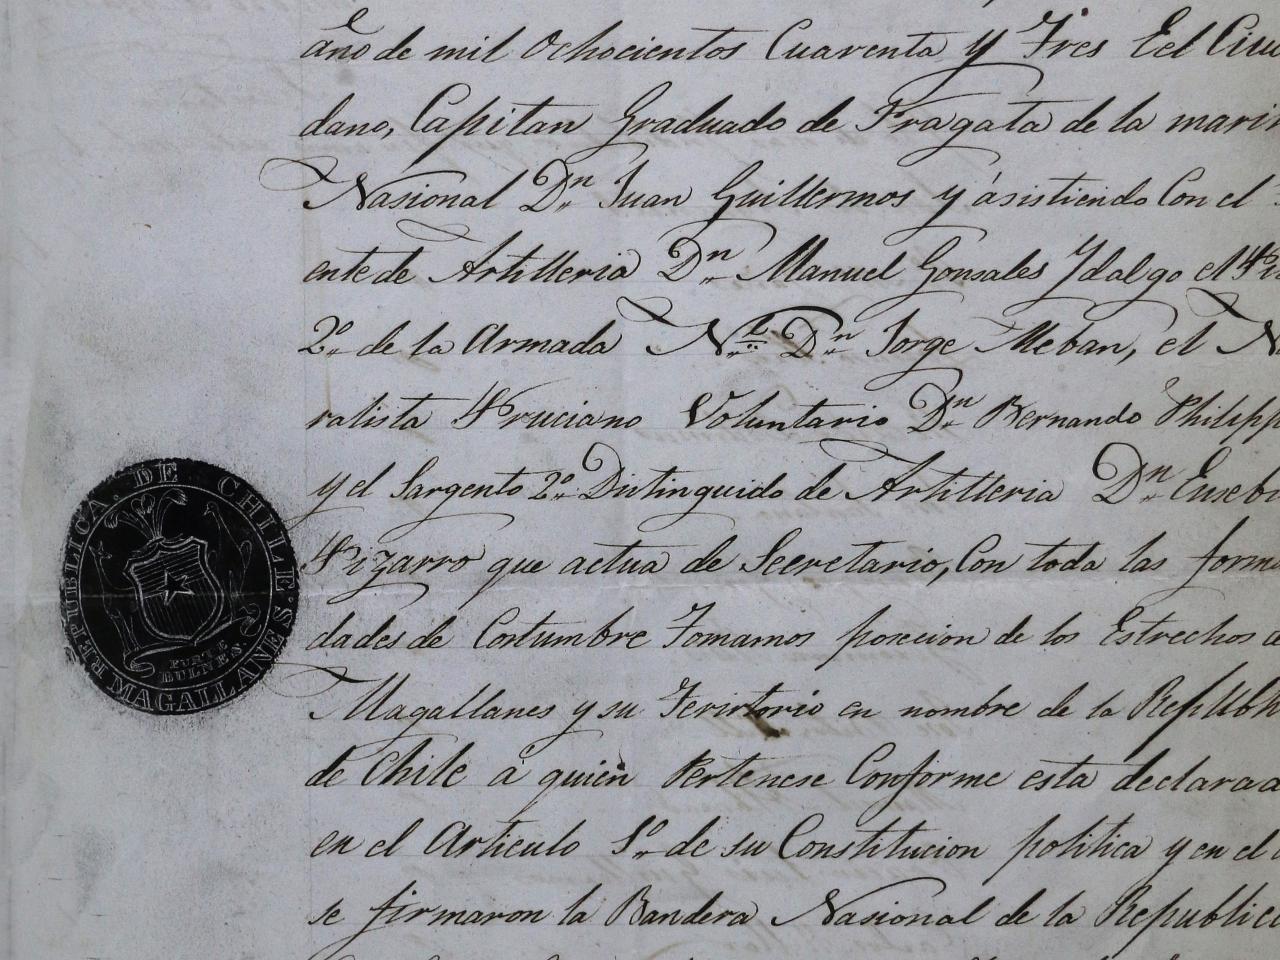 año de mil Ochocientos Cuarenta y Tres Eel Ciu
dano, Capitan Graduado de Fragata de la marin
Nasional Dn. Juan Guillermos y asistiendo Con el
ente de Artilleria Dn. Manuel Gonsales Ydalgo el
2º. de la Armada N.l Dn. Jorge Meban, el N
ralista Pruciano Voluntario Dn. Bernando Philipp
y el Sargento 2º. Distinguido de Artilleria Dn. Euseb
Pizarro que actua de Secretario, Con toda las form
dades de Costumbre Tomamos posecion de los Estrechos d
Magallanes y su Teriitorio en nombre de la Republi
de Chile a quien Pertenese Conforme esta declara
en el Articulo 1º. de su Constitucion politica y en el
se firmaron la Bandera Nasional de la Republic
REPUBLICA. DE CHILE.
FUERTE
BULNES.
MAGALLANEIS